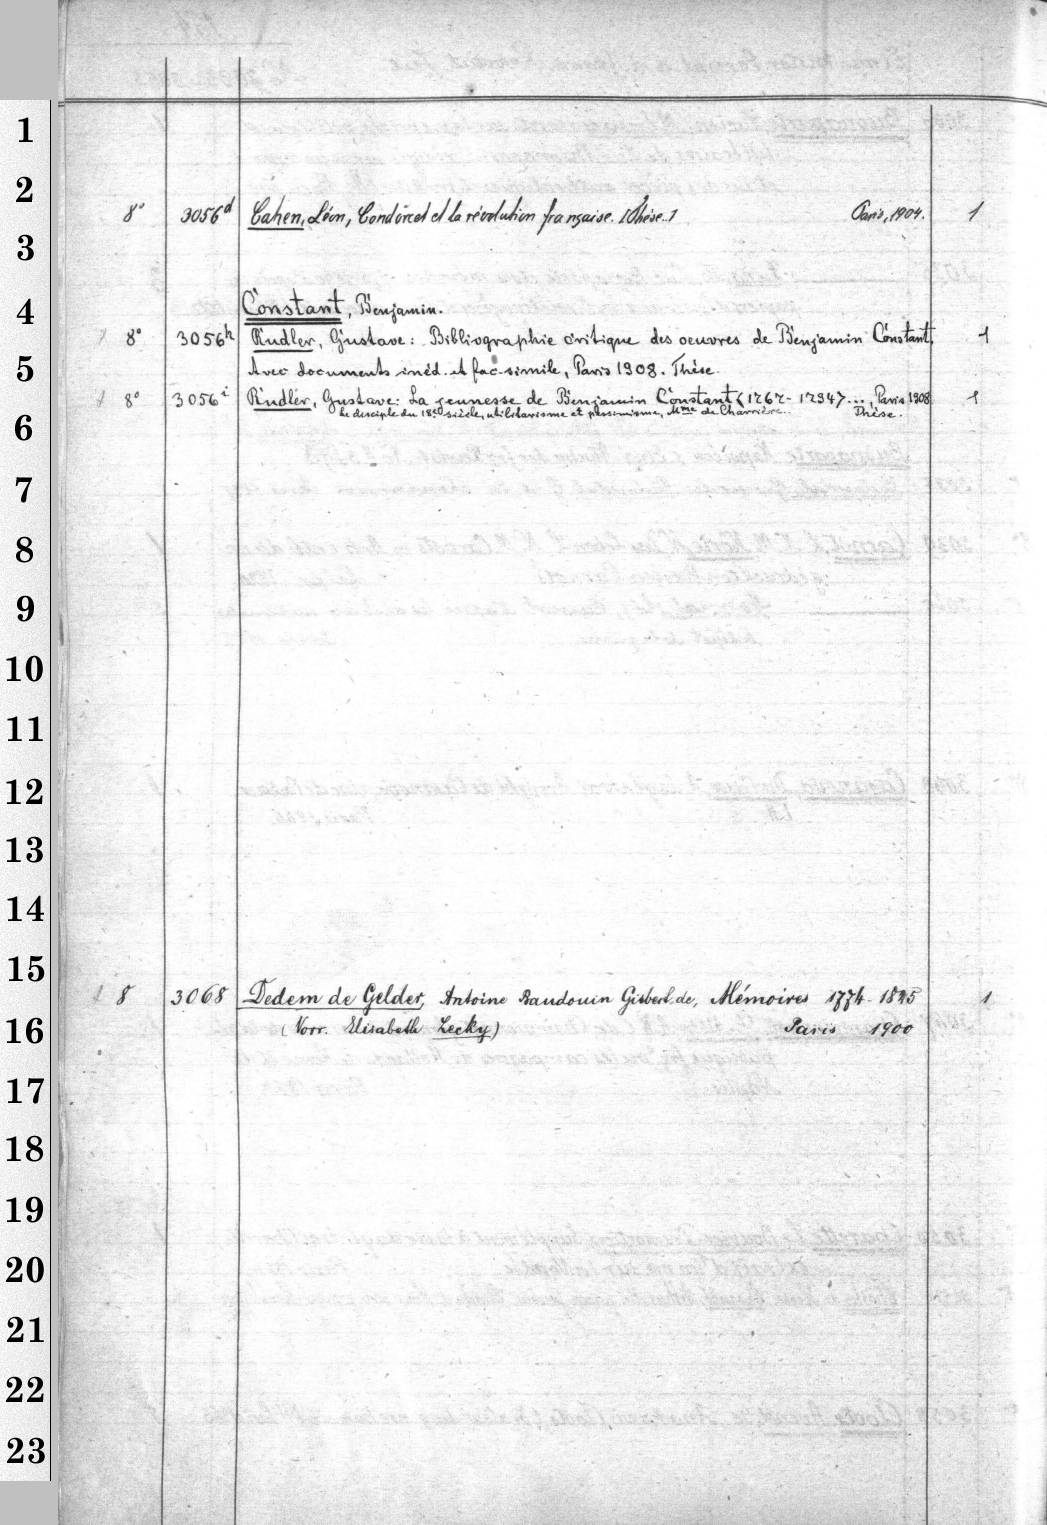 1
2
8° 3056d Cahen, Léon, Condorcet et la révolution française. [Thèse.] Paris, 1904. 1
3
4
Constant, Benjamin.
8° 3056h Rudler, Gustave: Bibliographie critique des oeuvres de Benjamin Constant, 1
5
Avec documents inéd. et fac-simile, Paris 1908. Thèse.
8° 3056i Rudler, Gustave: La jeunesse de Benjamin Constant (1767-1794) ..., Paris 1908 1
6
le disciple du 18e siècle, utilitarisme et pessimisme, Mme de Charrière.. Thèse.
7
8
9
10
11
12
13
14
15
8 3068 Dedem de Gelder, Antoine Baudouin Gisbert de, Mémoires 1774-1825 1
16
(Vorr. Elisabeth Lecky) Paris 1900
17
18
19
20
21
22
23